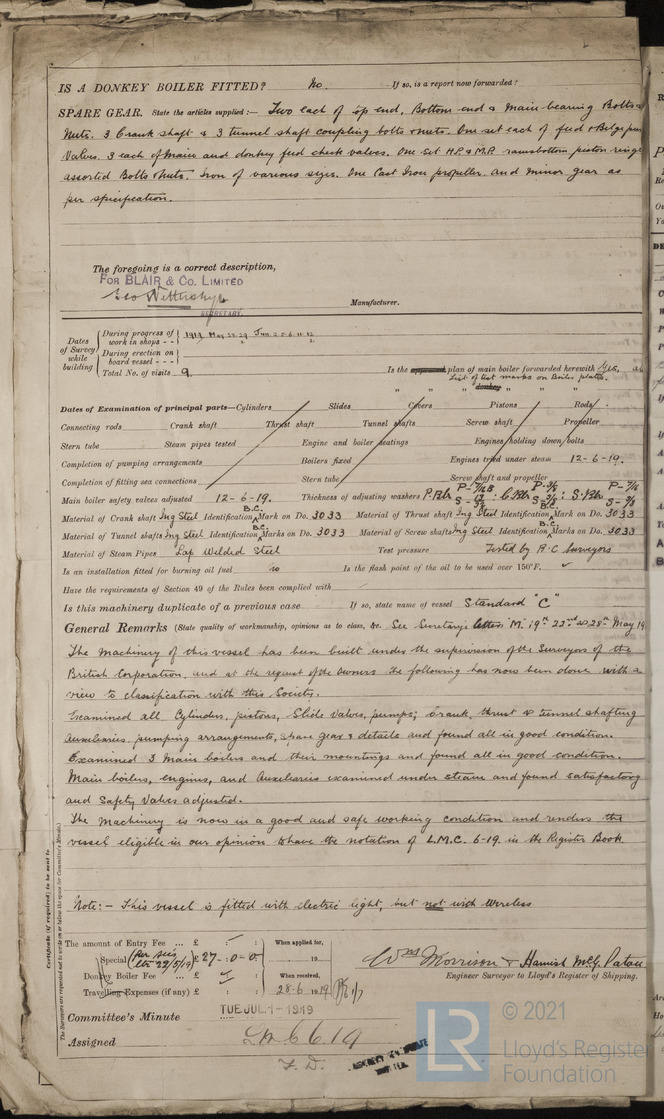 IS A DONKEY BOILER FITTED? No. If so, is a report now forwarded?
SPARE GEAR. State the articles supplied:— Two each of top end, Bottom end & Main bearing Bolts &
Nuts. 3 Crank shaft & 3 tunnel shaft coupling bolts & nuts. One set each of feed & Bilge pump
Valves. 3 each of Main and donkey feed check valves. One set H.P. & M.P. ramsbottom piston rings
assorted Bolts & Nuts. Iron of various sizes. One Cast Iron propeller. and minor gear as
per specification.
The foregoing is a correct description,
FOR BLAIR & CO. LIMITED
SECRETARY. Manufacturer.
Dates of Survey while building
During progress of work in shops - - 1919 May 28 29 Jun 2 5 6 11 12
During erection on board vessel - - -
Total No. of visits 9. Is the approved plan of main boiler forwarded herewith Yes,
List of test marks on Boiler plates.
" " donkey " " "
Dates of Examination of principal parts—Cylinders Slides Covers Pistons Rods
Connecting rods Crank shaft Thrust shaft Tunnel shafts Screw shaft Propeller
Stern tube Steam pipes tested Engine and boiler seatings Engines holding down bolts
Completion of pumping arrangements Boilers fixed Engines tried under steam 12-6-19.
Completion of fitting sea connections Stern tube Screw shaft and propeller
Main boiler safety valves adjusted 12-6-19. Thickness of adjusting washers
Material of Crank shaft Ing Steel Identification B.C. Mark on Do. 3033 Material of Thrust shaft Ing Steel Identification B.C. Mark on Do. 3033
Material of Tunnel shafts Ing Steel Identification B.C. Marks on Do. 3033 Material of Screw shafts Ing Steel Identification B.C. Marks on Do. 3033
Material of Steam Pipes Lap Welded Steel Test pressure Tested by B.C Surveyors
Is an installation fitted for burning oil fuel no Is the flash point of the oil to be used over 150°F. ✓
Have the requirements of Section 49 of the Rules been complied with
Is this machinery duplicate of a previous case If so, state name of vessel Standard "C"
General Remarks (State quality of workmanship, opinions as to class, &c. See Secretary's letters "M" 19th 22nd & 28th May 19
The Machinery of this vessel has been built under the supervision of the Surveyors of the
British Corporation, and at the request of the Owners the following has now been done with a
view to classification with this Society.
Examined all Cylinders, pistons, Slide Valves, pumps; Crank, thrust & tunnel shafting
Auxiliaries. pumping arrangements, spare gear & details and found all in good condition.
Examined 3 Main boilers and their mountings and found all in good condition.
Main boilers, engines, and Auxiliaries examined under steam and found satisfactory
and Safety Valves adjusted.
The Machinery is now in a good and safe working condition and renders the
vessel eligible in our opinion to have the notation of L.M.C. 6-19. in the Register Book.
Note:— This vessel is fitted with electric light, but not with Wireless
Certificate (if required) to be sent to
(The Surveyors are requested not to write on or below the space for Committee's Minute.)
The amount of Entry Fee ... £ : : When applied for,
Special (per secs ltr 22/5/19) £ 27 - : 0 - 0 19
Donkey Boiler Fee ... £ : : When received,
Travelling Expenses (if any) £ : : 28-6 1919
Wm Morrison & Hamish McG. Paton
Engineer Surveyor to Lloyd's Register of Shipping.
Committee's Minute TUE JUL 1 - 1919
Assigned LMC 6.19
F.D.
LR
© 2021
Lloyd's Register
Foundation